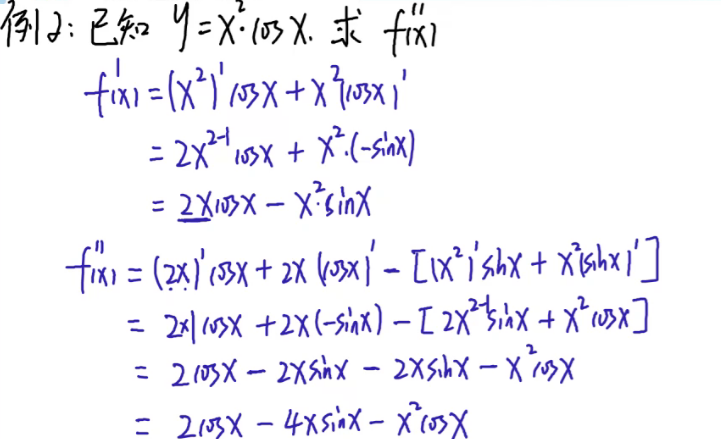 例2: 已知 y=x²·cosx. 求 f''(x)
f'(x) = (x²)'cosx + x²(cosx)'
= 2x²⁻¹cosx + x²·(-sinx)
= 2xcosx - x²·sinx
f''(x) = (2x)'cosx + 2x(cosx)' - [(x²)'sinx + x²(sinx)']
= 2×1cosx + 2x(-sinx) - [2x²⁻¹sinx + x²cosx]
= 2cosx - 2xsinx - 2xsinx - x²cosx
= 2cosx - 4xsinx - x²cosx